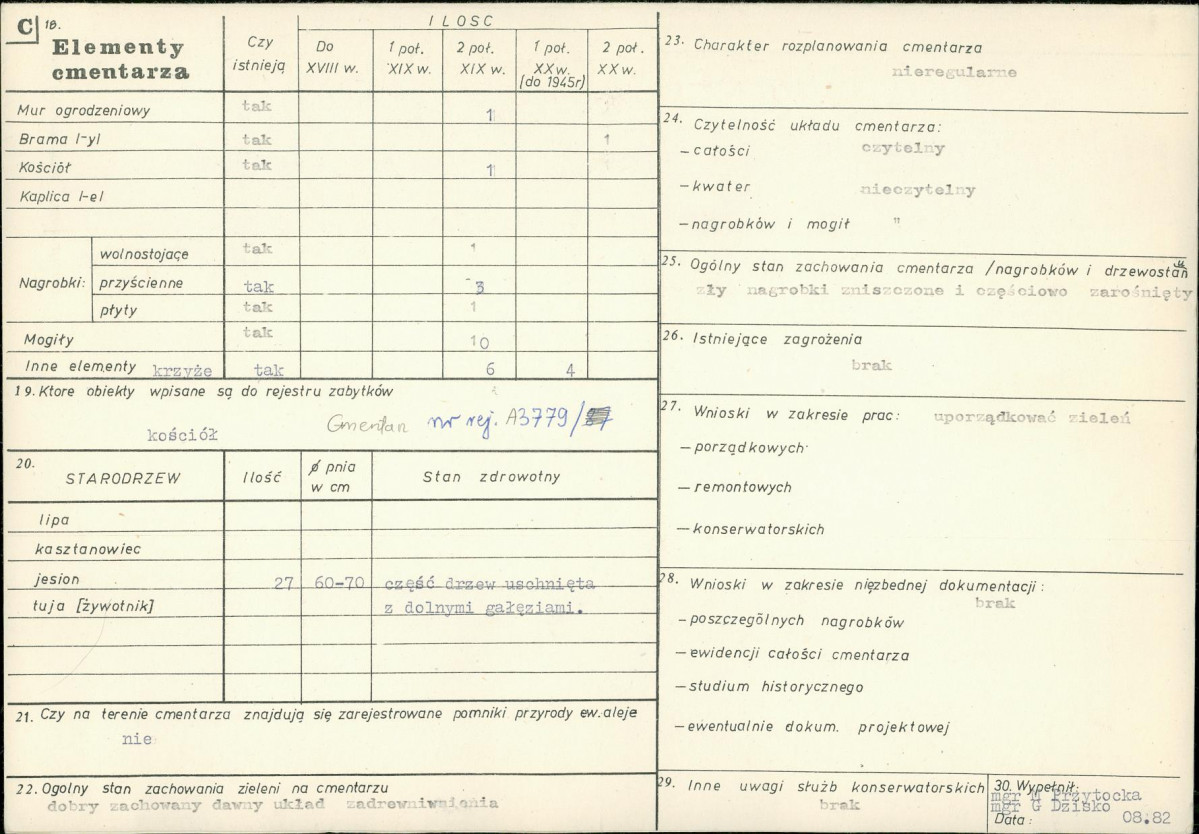 C 18. Elementy cmentarza
Czy istnieją
ILOSC
Do XVIII w.
1 poł. XIX w.
2 poł. XIX w.
1 poł. XX w. (do 1945r)
2 poł. XX w.
Mur ogrodzeniowy tak 1
Brama /-y/ tak 1
Kościół tak 1
Kaplica /-e/
Nagrobki:
wolnostojące tak 1
przyścienne tak 3
płyty tak 1
Mogiły tak 10
Inne elementy krzyże tak 6 4
19. Ktore obiekty wpisane są do rejestru zabytków
kościół nr rej. A3779/
20.
STARODRZEW Ilość ø pnia w cm Stan zdrowotny
lipa
kasztanowiec
jesion 27 60-70 część drzew uschnięta
tuja [żywotnik] z dolnymi gałęziami.
21. Czy na terenie cmentarza znajdują się zarejestrowane pomniki przyrody ew. aleje
nie
22. Ogolny stan zachowania zieleni na cmentarzu
dobry zachowany dawny układ
23. Charakter rozplanowania cmentarza
nieregularne
24. Czytelność układu cmentarza:
- całości czytelny
- kwater nieczytelny
- nagrobków i mogił "
25. Ogólny stan zachowania cmentarza /nagrobków i drzewostan
zły nagrobki zniszczone i częściowo zarośnięty
26. Istniejące zagrożenia
brak
27. Wnioski w zakresie prac: uporządkować zieleń
- porządkowych
- remontowych
- konserwatorskich
28. Wnioski w zakresie nięzbednej dokumentacji:
brak
- poszczególnych nagrobków
- ewidencji całości cmentarza
- studium historycznego
- ewentualnie dokum. projektowej
29. Inne uwagi służb konserwatorskich
brak
30. Wypełnił:
mgr M Przytocka
mgr G Dzisko
Data: 08.82